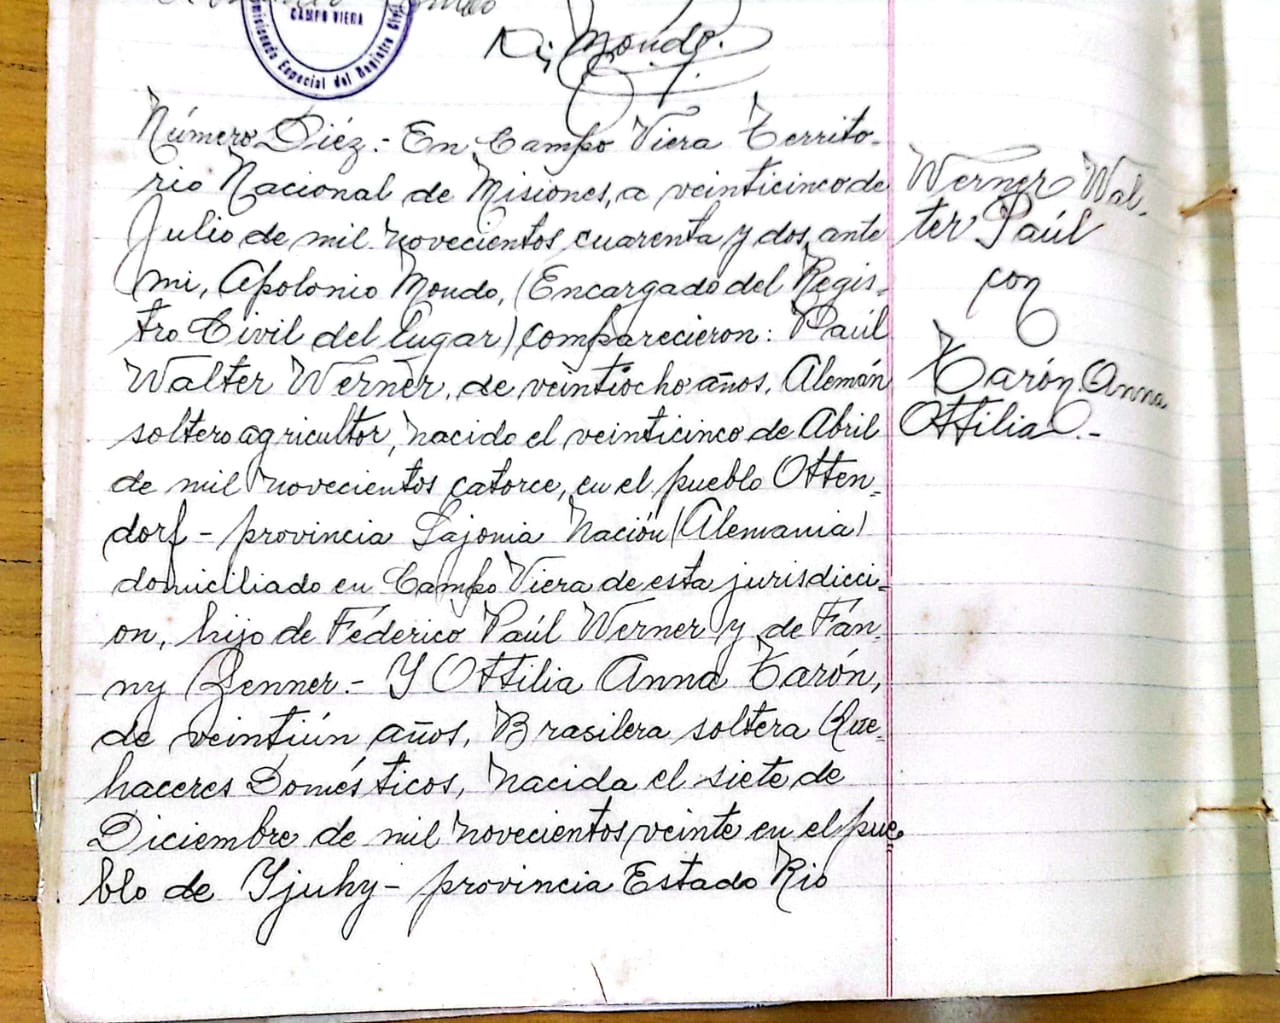 CAMPO VIERA
Comisionado Especial del Registro Civil
Mondo.
Número Diéz.- En Campo Viera Territo-
rio Nacional de Misiones, a veinticinco de
Julio de mil novecientos cuarenta y dos, ante
mi, Apolonio Mondo, (Encargado del Regis-
tro Civil del Lugar) comparecieron: Paúl
Walter Werner, de veintiocho años, Alemán
soltero agricultor, nacido el veinticinco de Abril
de mil novecientos catorce, en el pueblo Otten-
dorf - provincia Sajonia Nación (Alemania)
domiciliado en Campo Viera de esta jurisdicci-
on, hijo de Féderico Paúl Werner y de Fán-
ny Zenner.- Y Ottilia Anna Tarón,
de veintiún años, Brasilera soltera Que-
haceres Domésticos, nacida el siete de
Diciembre de mil novecientos veinte en el pue-
blo de Yjuhy - provincia Estado Rio
Werner Wal-
ter Paúl
con
Tarón Anna
Ottilia.-